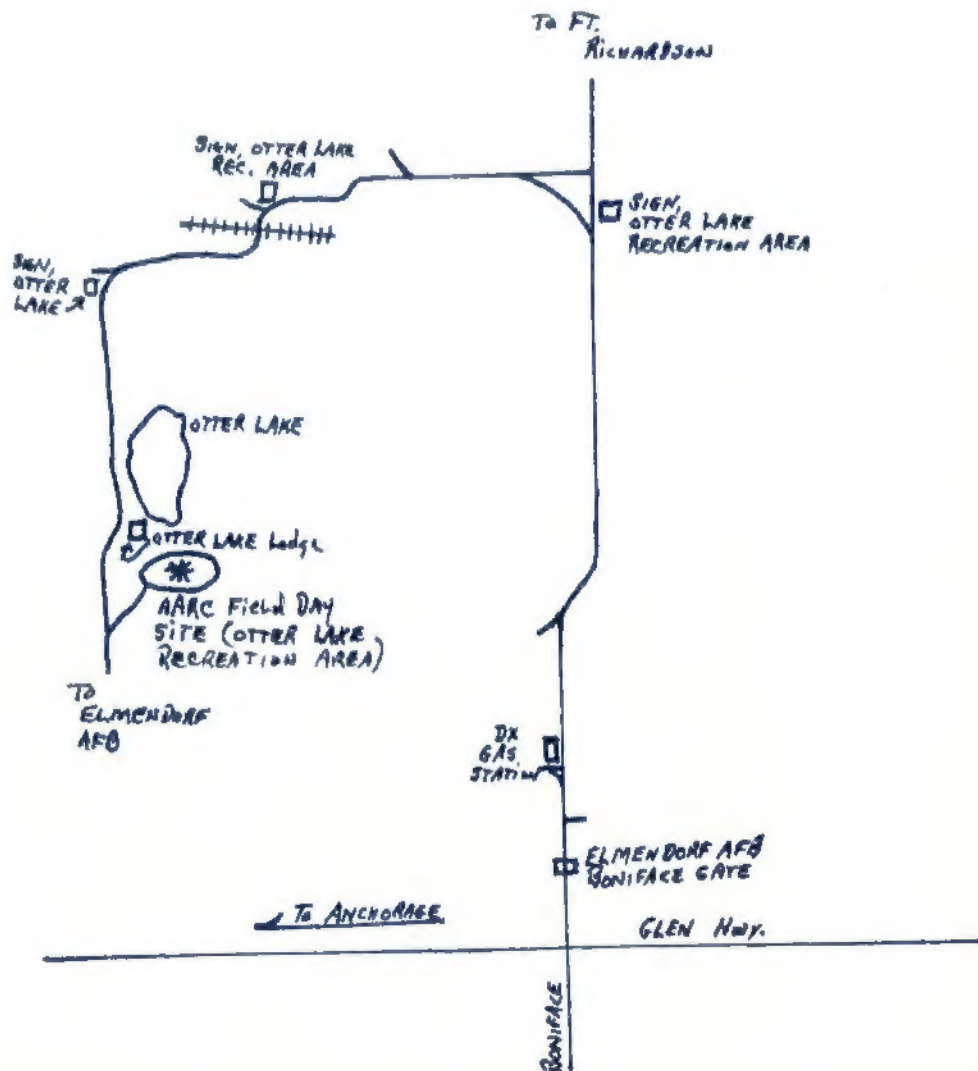 To FT.
RICHARDSON
SIGN, OTTER LAKE
REC. AREA
SIGN,
OTTER LAKE
RECREATION AREA
SIGN,
OTTER
LAKE
OTTER LAKE
OTTER LAKE Lodge
AARC Field DAY
SITE (OTTER LAKE
RECREATION AREA)
To
ELMENDORF
AFB
DX
GAS
STATION
ELMENDORF AFB
BONIFACE GATE
To ANCHORAGE
GLEN Hwy.
BONIFACE